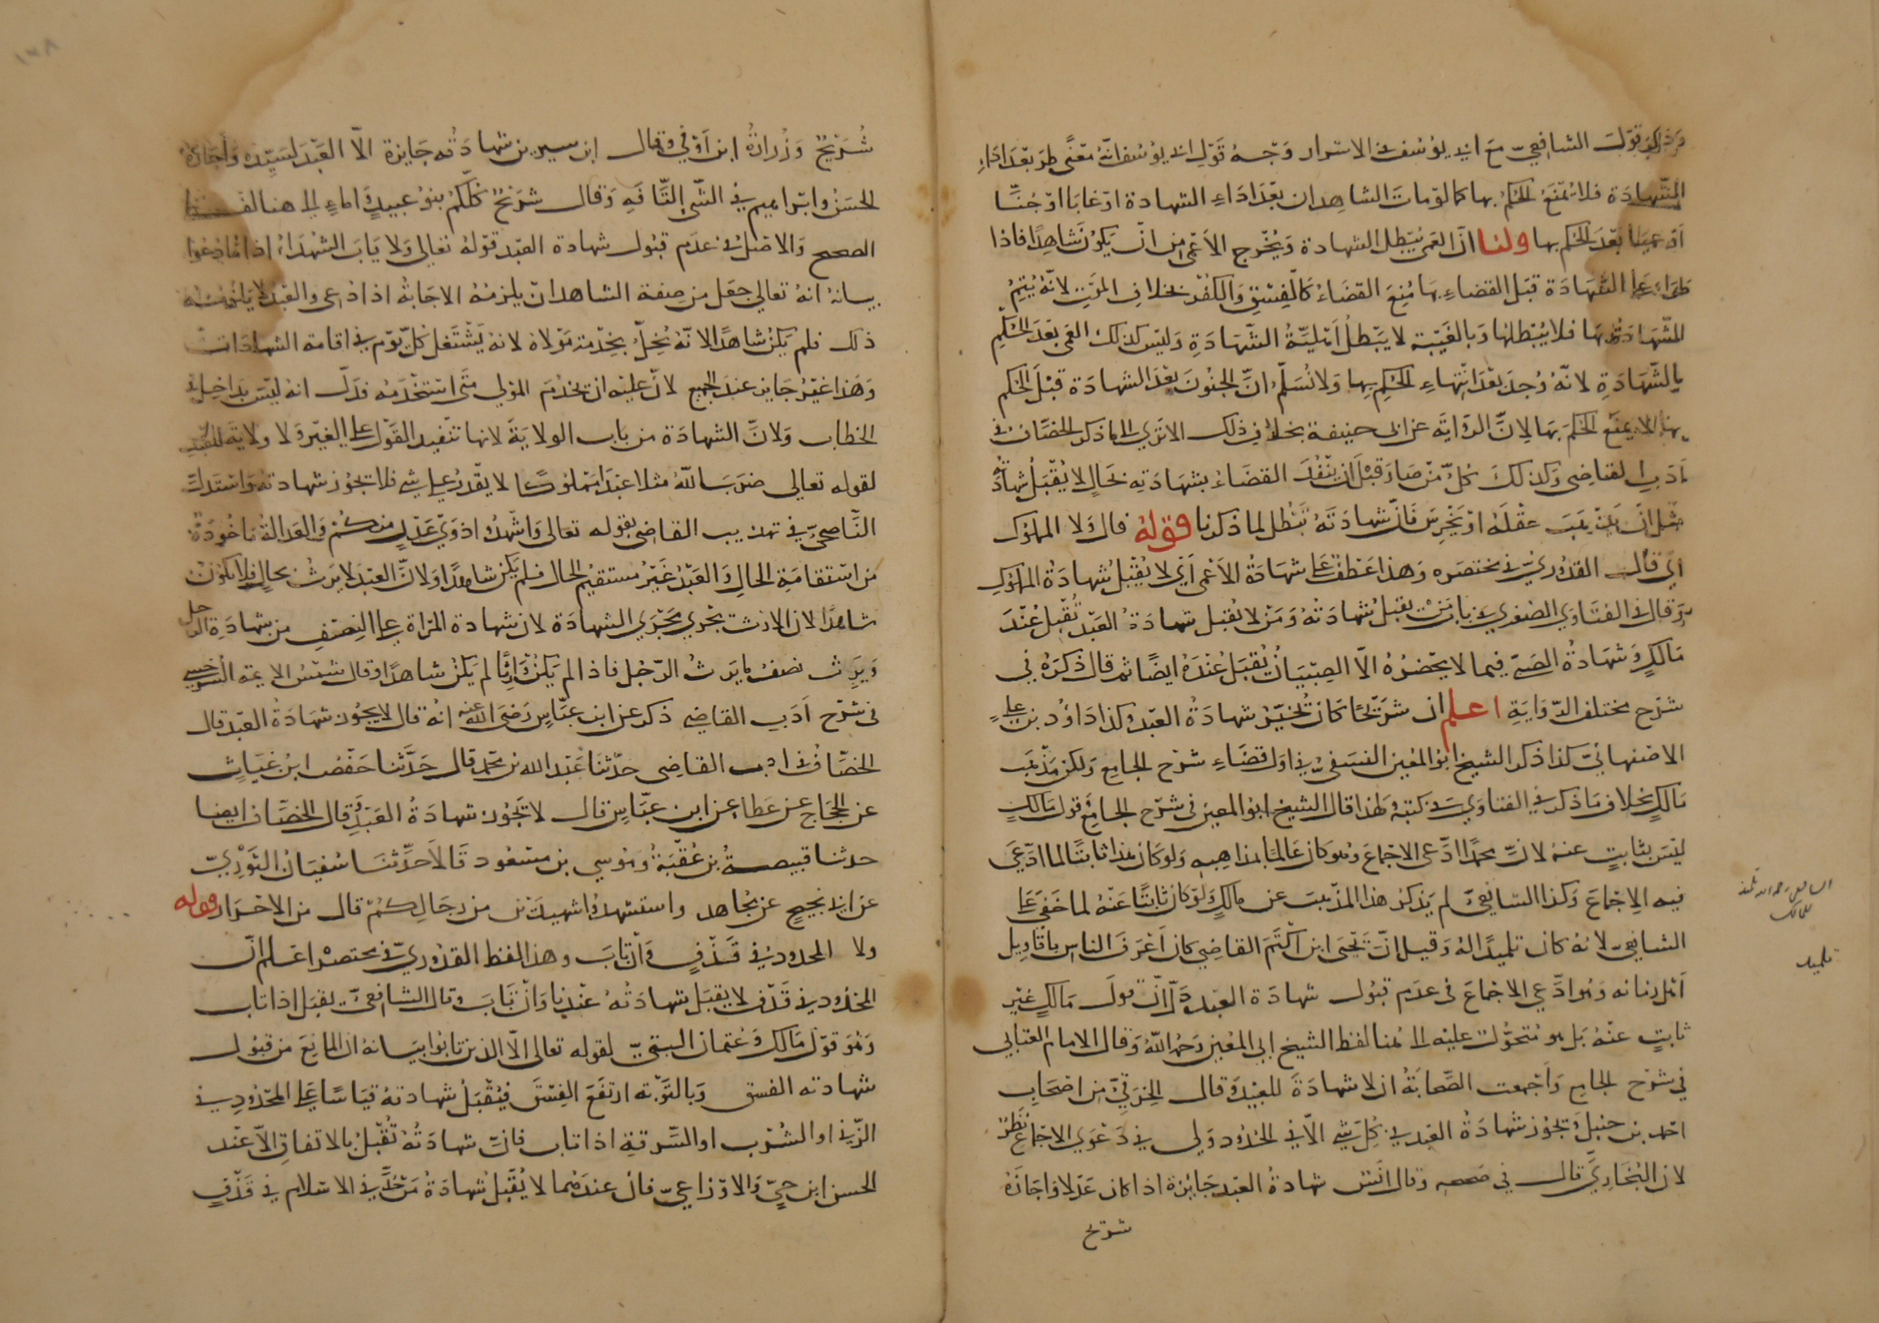 قول الشافعي مع ابي يوسف في الاسرار وجه قول ابي يوسف انه معنًى طرَ بعد اداءِ
الشهادة فلا يُمنع الحكم بها كما لو مات الشاهدان بعد اداء الشهادة او غابا او جُنَّا
او عميا بعد الحكم بها ولنا ان العمى يُبطل الشهادة ويُخرج الاعمى من ان يكون شاهدًا فاذا
طراء على الشهادة قبل القضاء بها مُنِعَ القضاءُ كالفسق والكفر بخلاف الموت لانه يُتِمُّ
الشهادة بها فلا يُبطلها وبالغَيبة لا يبطلُ اهليّةُ الشهادة وليس كذلك العمى بعد الحكم
بالشهادة لانه وُجدَ بعد انتهاء الحكم بها ولا نُسلّم ان الجنون بعد الشهادة قبل الحكم
بها لا يمنع الحكم بها لان الرواية عن ابي حنيفة بخلاف ذلك الا ترى الى ما ذكر الخصّاف في
ادب القاضي وكذلك كلُّ من صار قبل ان ينفُذَ القضاءُ بشهادته بحالٍ لا يُقبَلُ شهادته
مثل ان يذهب عقله او يخرس فان شهادته تبطل لما ذكرنا قوله قال ولا المملوك
اي قال القدوري في مختصره وهذا عطف على شهادة الاعمى اي لا يُقبلُ شهادةُ المملوكِ
وقال في الفتاوي الصغرى في باب من يقبل شهادته ومن لا يقبل شهادةُ العبد تُقبل عند
مالكٍ وشهادةُ الصبي فيما لا يحضرُهُ الّا الصِبيَانُ تُقبَلُ عندهُ ايضًا ثم قال ذكرهُ في
شرح مختلف الرواية اعلم ان شُرَيحًا كان يُجيزُ شهادةُ العبد وكذا داوُد بن علي
الاصفهانيّ كذا ذكر الشيخ ابو المعين النسفي في اول قضاء شرح الجامع ولكن مذهب
مالكٍ بخلاف ما ذكر في الفتاوى في كتبه ولهذا قال الشيخ ابو المعين في شرح الجامع قول مالكٍ
ليسَ بثابتٍ عنه لان محمدًا ادّعى الاجماعَ وهو كان عالمًا بمذاهبه ولو كان هذا ثابتًا لما ادّعى
فيه الاجماعَ وكذا الشافعي لم يَذكُر هذا المذهبَ عن مالكٍ ولو كان ثابتًا عنهُ لما خفيَ على
الشافعي لانه كان تلميذًا لهُ وقيل انّ يحيى ابن اكثم القاضي كان اعرفَ الناسِ باقاويل
اهل زمانه وهو ادّعى الاجماعَ في عدم قبول شهادة العبد دلّ انّ قولَ مالكٍ غير
ثابتٍ عنهُ بل هو متحوّلٌ عليه الى هُنا لفظ الشيخ ابي المُعين رحمهُ اللّه وقال الامام العتابي
في شرح الجامع واَجمعت الصحابَةُ ان لا شهادةَ للعبيد وقال الخرقيّ من اصحاب
احمد بن حنبل وتجوز شهادةُ العبد في كل شيء الّا في الحدُود ولي في دعوى الاجماع نظرٌ
لان البُخاريَّ قال في صحيحه وقال انَس شهادةُ العبد جايزة اذا كان عدلا واجازهُ
شريح
الشافعي رحمه الله تلميذ
لمالك
تلميذ
شُرَيْحٌ وزُرارةُ ابن اَوْفى وقال ابن سيرين شهادتُه جَايزة الّا العَبد لسَيّده واجازهُ
الحسَنُ وابراهيم في الشيء التّافِهِ وقال شُرَيحٌ كلّكم بنُو عبيدٍ واماءٍ الى هنا لفظ
الصحيح والاصلُ في عدم قبُول شهادة العبد قولهُ تعالى ولا يَابَ الشُهَداءُ اذا ما دُعُوا
بيانهُ انهُ تعالى جعل من صفة الشاهد ان يلزمهُ الاجابةُ اذا دُعي والعَبدُ لا يلزمهُ
ذلك فلم يكن شاهدًا لانّهُ يُخلُّ بخِدمة مَولاهُ لانه يَشتغل كُلّ يَوم في اقامة الشهادات
وهذا غيرُ جايز عند الجميع لانّ عليه ان يخدُمَ المولى متى استخدَمهُ فدَلّ انه ليس بداخلٍ في
الخطاب ولانّ الشهادة من باب الولاية لانها تنفيذ القول على الغير ولا ولاية للعبد
لقوله تعالى ضرَبَ اللّه مثلا عبدًا مَملوكًا لا يقدرُ على شيءٍ فلا تجوز شهادته واستدلّ
النّاصحيّ في تهذيب القاضي بقوله تعالى واشهدُوا ذوَي عدلٍ منكُم والعدالةُ مَاخُوذةٌ
من استقامةِ الحالِ والعبدُ غيرُ مستقيم الحال فلم يَكُن شاهدًا ولانّ العبد لا يرثُ بحالٍ فلا يكون
شاهدًا لان الارث يَجري مَجرَى الشهادة لان شهادة المراة على النِصفِ من شهادَة الرجل
ويَرِث نصفُ ما يَرثُ الرّجُل فاذا لم يَكُن وارِثًا لم يَكُن شاهدًا وقال شمسُ الايمة السرخسي
في شرح ادب القاضي ذكر عن ابن عبّاسٍ رضى اللّه عنه انهُ قال لا يجُوز شهادةُ العبد قال
الخصّافُ في ادب القاضي حدّثنا عبد الله بن محمد قال حدّثنا حفصُ ابن غياثٍ
عن الحجّاج عن عطا عن ابن عبّاسٍ قال لا تجُوز شهادةُ العَبد وقال الخصّاف ايضا
حدثنا قبيصةُ بن عُقبَةُ وموسى بن مسعُود قالا حدّثنا سُفيانُ الثوريّ
عن ابي نجيح عن مجُاهد واستشهدُوا شهيدَين من رجالِكُم قال من الاحرار قوله
ولا المحدودُ في قذفٍ وان تابَ وهذا لفظ القدُوريّ في مختصره اعلم انّ
المحدُود في قذف لا يقبَل شهادتُهُ عندنا وان تابَ وقال الشافعيّ يقبَل اذا تاب
وهوَ قول مَالك وعُثمان البتيّ لقوله تعالى الّا الذين تابوا بيَانهُ ان المانِعَ من قبُول
شهادته الفسق وبالتّوبَة ارتفعَ الفِسقُ فيُقبَلُ شهادتهُ قياسًا على المحدُود في
الزّنى او الشرب او السَّرقة اذا تاب فانّ شهادتهُ تُقبلُ بالاتفاق الّا عند
الحسن ابن حيّ والاوزاعيّ فان عندهُما لا يُقبَلُ شهادةُ مَن حُدَّ في الاسلام في قذفٍ